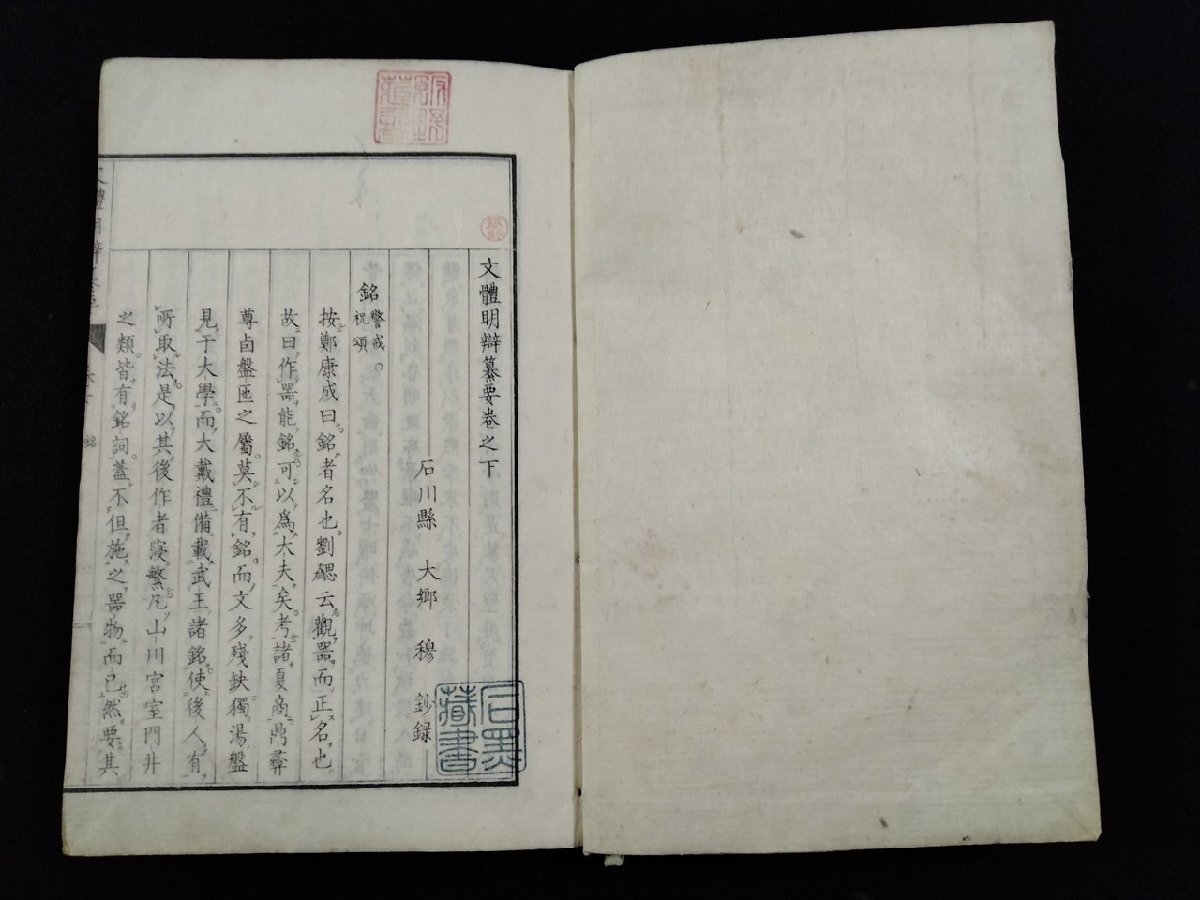 文體明辯纂要卷之下
石川縣 大鄉 穆 鈔録
銘 警戒 祝頌
按鄭康成曰銘者名也劉勰云觀器而正名也
故曰作器能銘可以爲大夫矣考諸夏商鼎彝
尊卣盤匜之屬莫不有銘而文多殘缺獨湯盤
見于大學而大戴禮備載武王諸銘使後人有
所取法是以其後作者寖繁凡山川宮室門井
之類皆有銘詞蓋不但施之器物而已然要其
石墨藏書